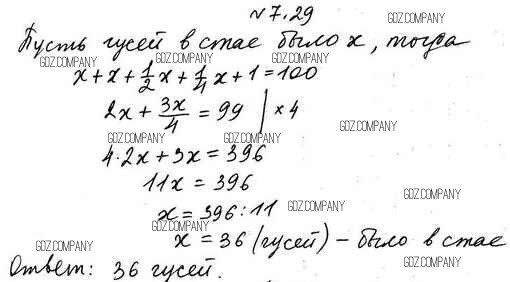 №7.29
GDZ.COMPANY
Пусть гусей в стае было x, тогда
GDZ.COMPANY GDZ.COMPANY GDZ.COMPANY
x + x + 1/2 x + 1/4 x + 1 = 100
2x + 3x/4 = 99 | × 4
GDZ.COMPANY GDZ.COMPANY GDZ.COMPANY
4·2x + 3x = 396
11x = 396
GDZ.COMPANY
x = 396 : 11 GDZ.COMPANY
GDZ.COMPANY
x = 36 (гусей) – было в стае
GDZ.COMPANY GDZ.COMPANY
Ответ: 36 гусей.